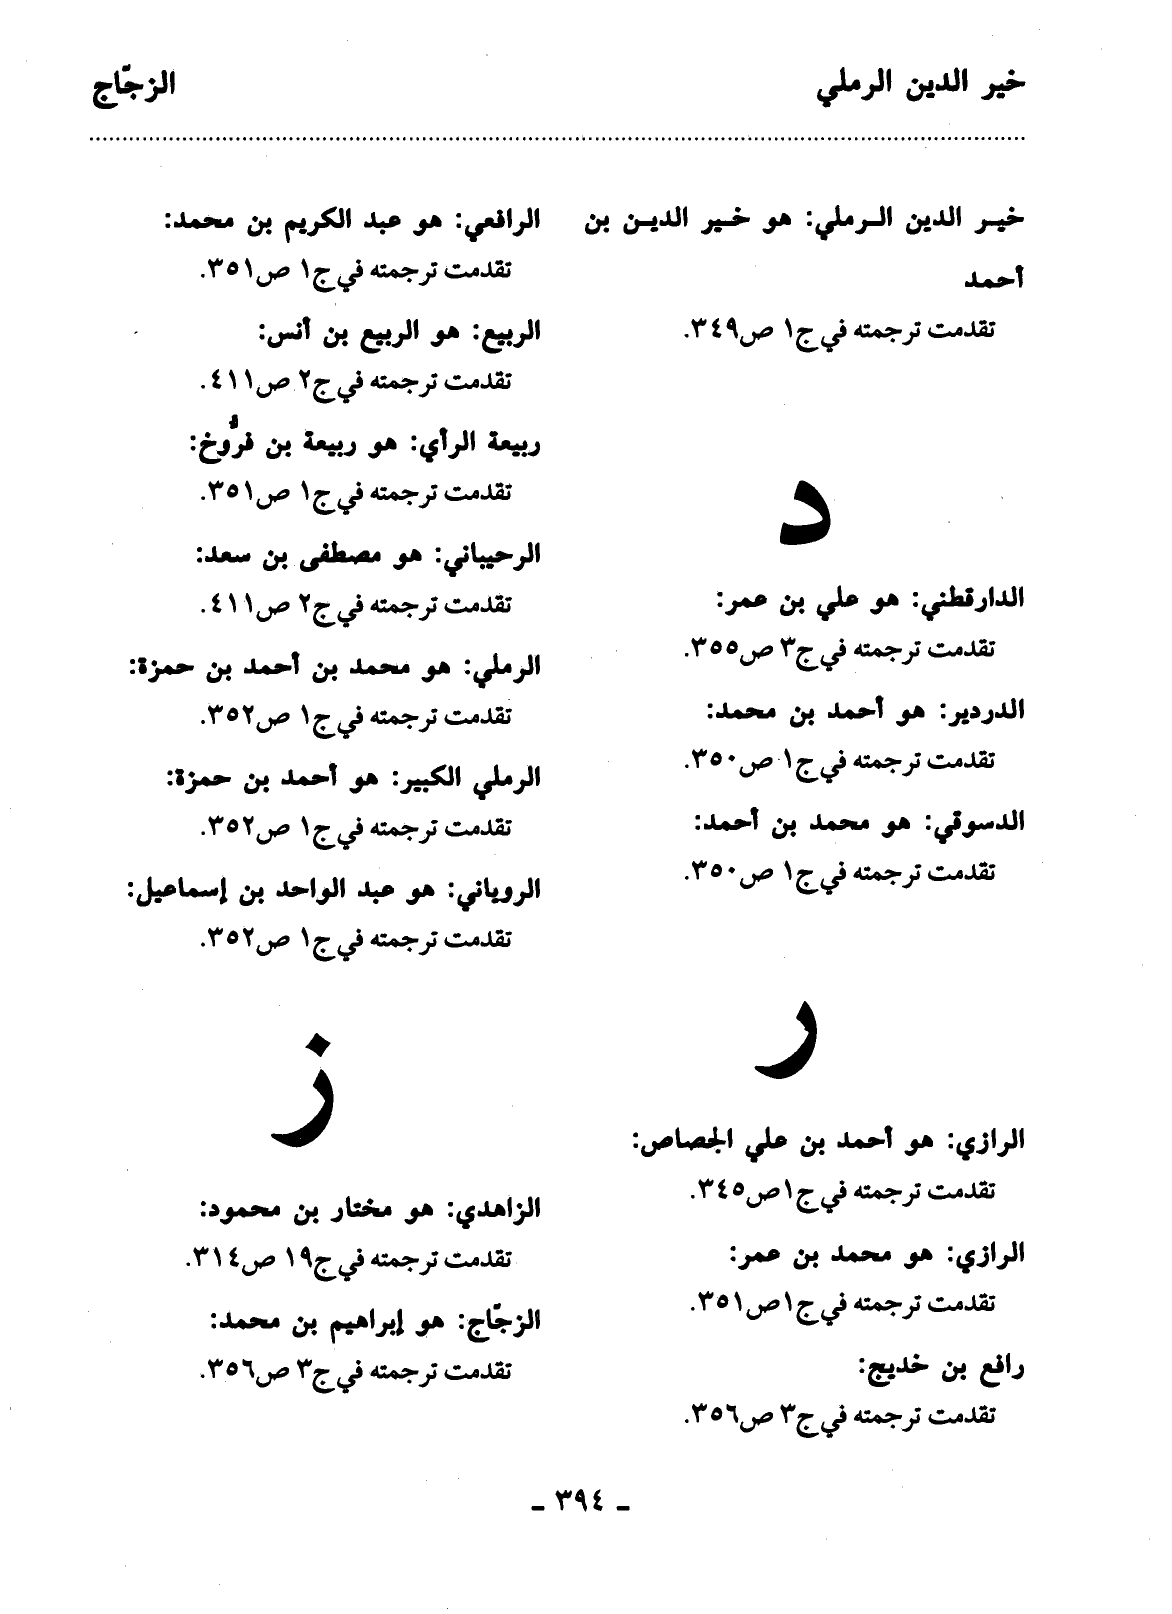 خير الدين الرملي
الزجّاج
خيـر الدين الـرملي: هو خـير الديـن بن
أحمد
تقدمت ترجمته في ج١ ص٣٤٩.
د
الدارقطني: هو علي بن عمر:
تقدمت ترجمته في ج٣ ص٣٥٥.
الدردير: هو أحمد بن محمد:
تقدمت ترجمته في ج١ ص٣٥٠.
الدسوقي: هو محمد بن أحمد:
تقدمت ترجمته في ج١ ص٣٥٠.
ر
الرازي: هو أحمد بن علي الجصاص:
تقدمت ترجمته في ج١ ص٣٤٥.
الرازي: هو محمد بن عمر:
تقدمت ترجمته في ج١ ص٣٥١.
رافع بن خديج:
تقدمت ترجمته في ج٣ ص٣٥٦.
الرافعي: هو عبد الكريم بن محمد:
تقدمت ترجمته في ج١ ص٣٥١.
الربيع: هو الربيع بن أنس:
تقدمت ترجمته في ج٢ ص٤١١.
ربيعة الرأي: هو ربيعة بن فرُّوخ:
تقدمت ترجمته في ج١ ص٣٥١.
الرحيباني: هو مصطفى بن سعد:
تقدمت ترجمته في ج٢ ص٤١١.
الرملي: هو محمد بن أحمد بن حمزة:
تقدمت ترجمته في ج١ ص٣٥٢.
الرملي الكبير: هو أحمد بن حمزة:
تقدمت ترجمته في ج١ ص٣٥٢.
الروياني: هو عبد الواحد بن إسماعيل:
تقدمت ترجمته في ج١ ص٣٥٢.
ز
الزاهدي: هو مختار بن محمود:
تقدمت ترجمته في ج١٩ ص٣١٤.
الزجّاج: هو إبراهيم بن محمد:
تقدمت ترجمته في ج٣ ص٣٥٦.
- ٣٩٤ -